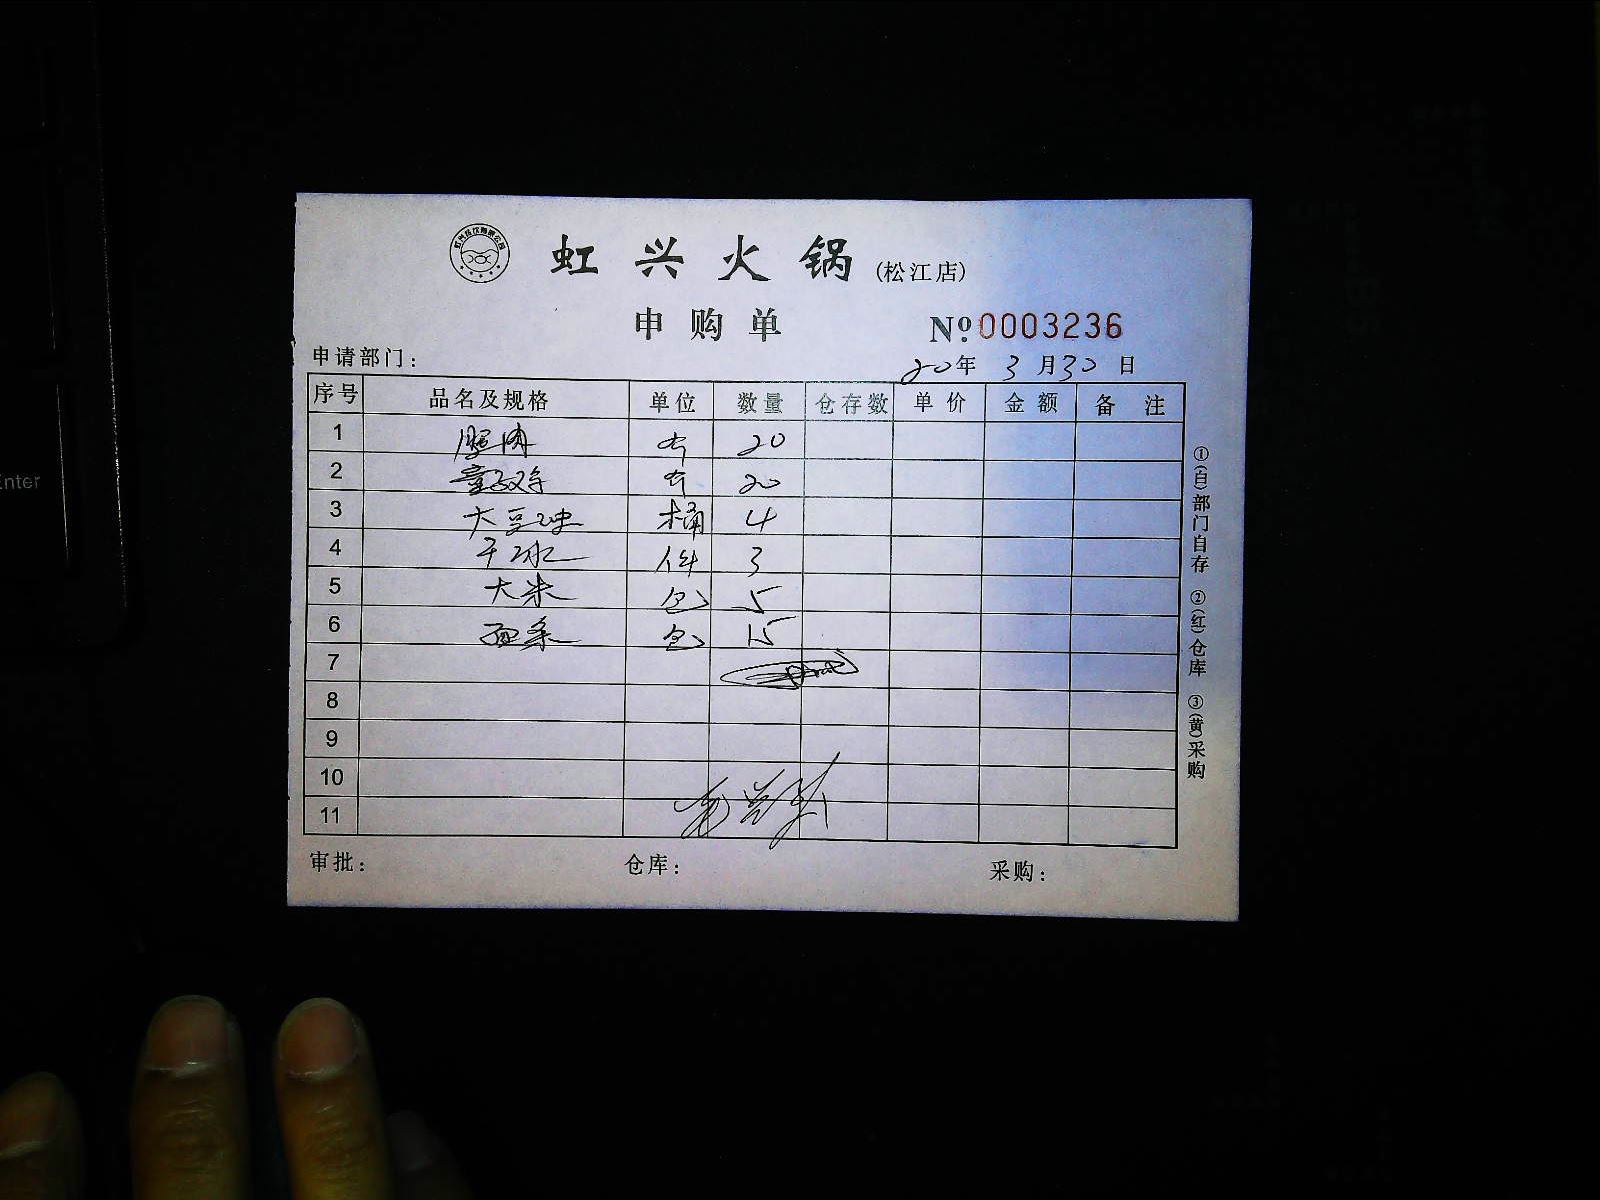 虹兴火锅 (松江店)
申购单 №0003236
申请部门： 20年 3月30日
序号 品名及规格 单位 数量 仓存数 单价 金额 备注
1 腿肉 斤 20
2 童子鸡 斤 20
3 大豆油 桶 4
4 干冰 件 3
5 大米 包 5
6 面条 包 15
7
8
9
10
11
审批： 仓库： 采购：
①(白)部门自存 ②(红)仓库 ③(黄)采购
Enter